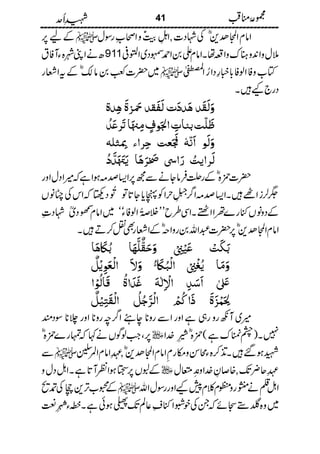 مجموعہ مناقب 41 شہیدِ اُحد
امام المجاہدین ؓ کی شہادت، اہل بیت و اصحابِ رسول ﷺ کے لیے پر
ملال و اندوہناک واقعہ تھا۔ امام علی بن احمد سمہودی المتوفی 911ھ نے اپنی شہرۂ آفاق
کتاب وفا الوفا باخبار دار المصطفیٰ ﷺ میں حضرت کعب بن مالک ؓ کے یہ اشعار
درج کیے ہیں۔
وَلَقَد هَدَدت لفَقدِ حَمزَةَ هِدةً
ظَلَّت بناتِ الجَوفِ مِنهَا تَرَعَدُ
وَلَو أنهُ فَجَعَت حِراء بمثله
لَرايتُ راسَی صَخرِهَا يَتَهَدَّدُ
حضرت حمزہ ؓ کے رحلت فرما جانے سے مجھ پر ایسا صدمہ ہوا ہے کہ میرا دل اور
جگر لرز اٹھے ہیں۔ ایسا صدمہ اگر جبلِ حرا کو پہنچایا جاتا تو تُو دیکھتا کہ اس کی چٹانوں
کے دونوں کنارے تھرا اٹھتے۔ اسی طرح ''خلاصۃ الوفاء'' میں امام سمہودی شہادت
امام المجاہدین ؓ پر حضرت عبداللہ بن رواحہ ؓ کے اشعار بھی نقل کرتے ہیں۔
بَكَتْ عَيْنِىْ وَحَقَّ لَهَا بُكَاهَا
وَمَا يُغْنِى الْبُكَاءُ وَلَا الْعَوِيْلُ
عَلىٰ اَسَدِ الْاِلٰهِ غَدَاةَ قَالُوْا
لِحَمْزَةَ ذَاكُمُ الرَّجُلُ الْقَتِيْلُ
میری آنکھ رو رہی ہے اور اسے رونا چاہئے اگرچہ رونا اور چلانا سودمند
نہیں۔ (چشم نمناک ہے) حمزہ ؓ شیرِ خدا پر، جب لوگوں نے کہا کہ تمہارے حمزہ ؓ
شہید ہو گئے ہیں۔ تذکرہ محاسن و مکارمِ امام المجاہدین ؓ، عہدِ امام المرسلین ﷺ سے
عہدِ حاضر تک، خاصانِ خدائے متعال کے لبوں پر سجتا ہوا نظر آتا ہے۔ اہلِ دل و
اہلِ قلم نے منثور و منظوم کلام پیش کیے اور رسول اللہ ﷺ کے محبوب ترین چچا کی تمدیح
میں وہ گلدستے سجائے کہ جن کی خوشبو اکناف عالم تک پھیلی ہوئی ہے۔ خطۂ شہرِ نعت